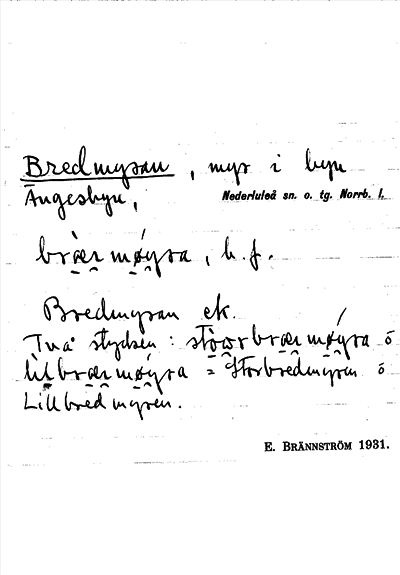 Bredmyran, myr i byn
Ängesbyn,
Nederluleå sn. o. tg. Norrb. l.
bræ̀rmøyra, b. f.
Bredmyran ek.
Två stycken: stòωrbrærmøýra ō
lìlbrærmøyra = Storbredmyren ō
Lillbredmyren.
E. BRÄNNSTRÖM 1931.